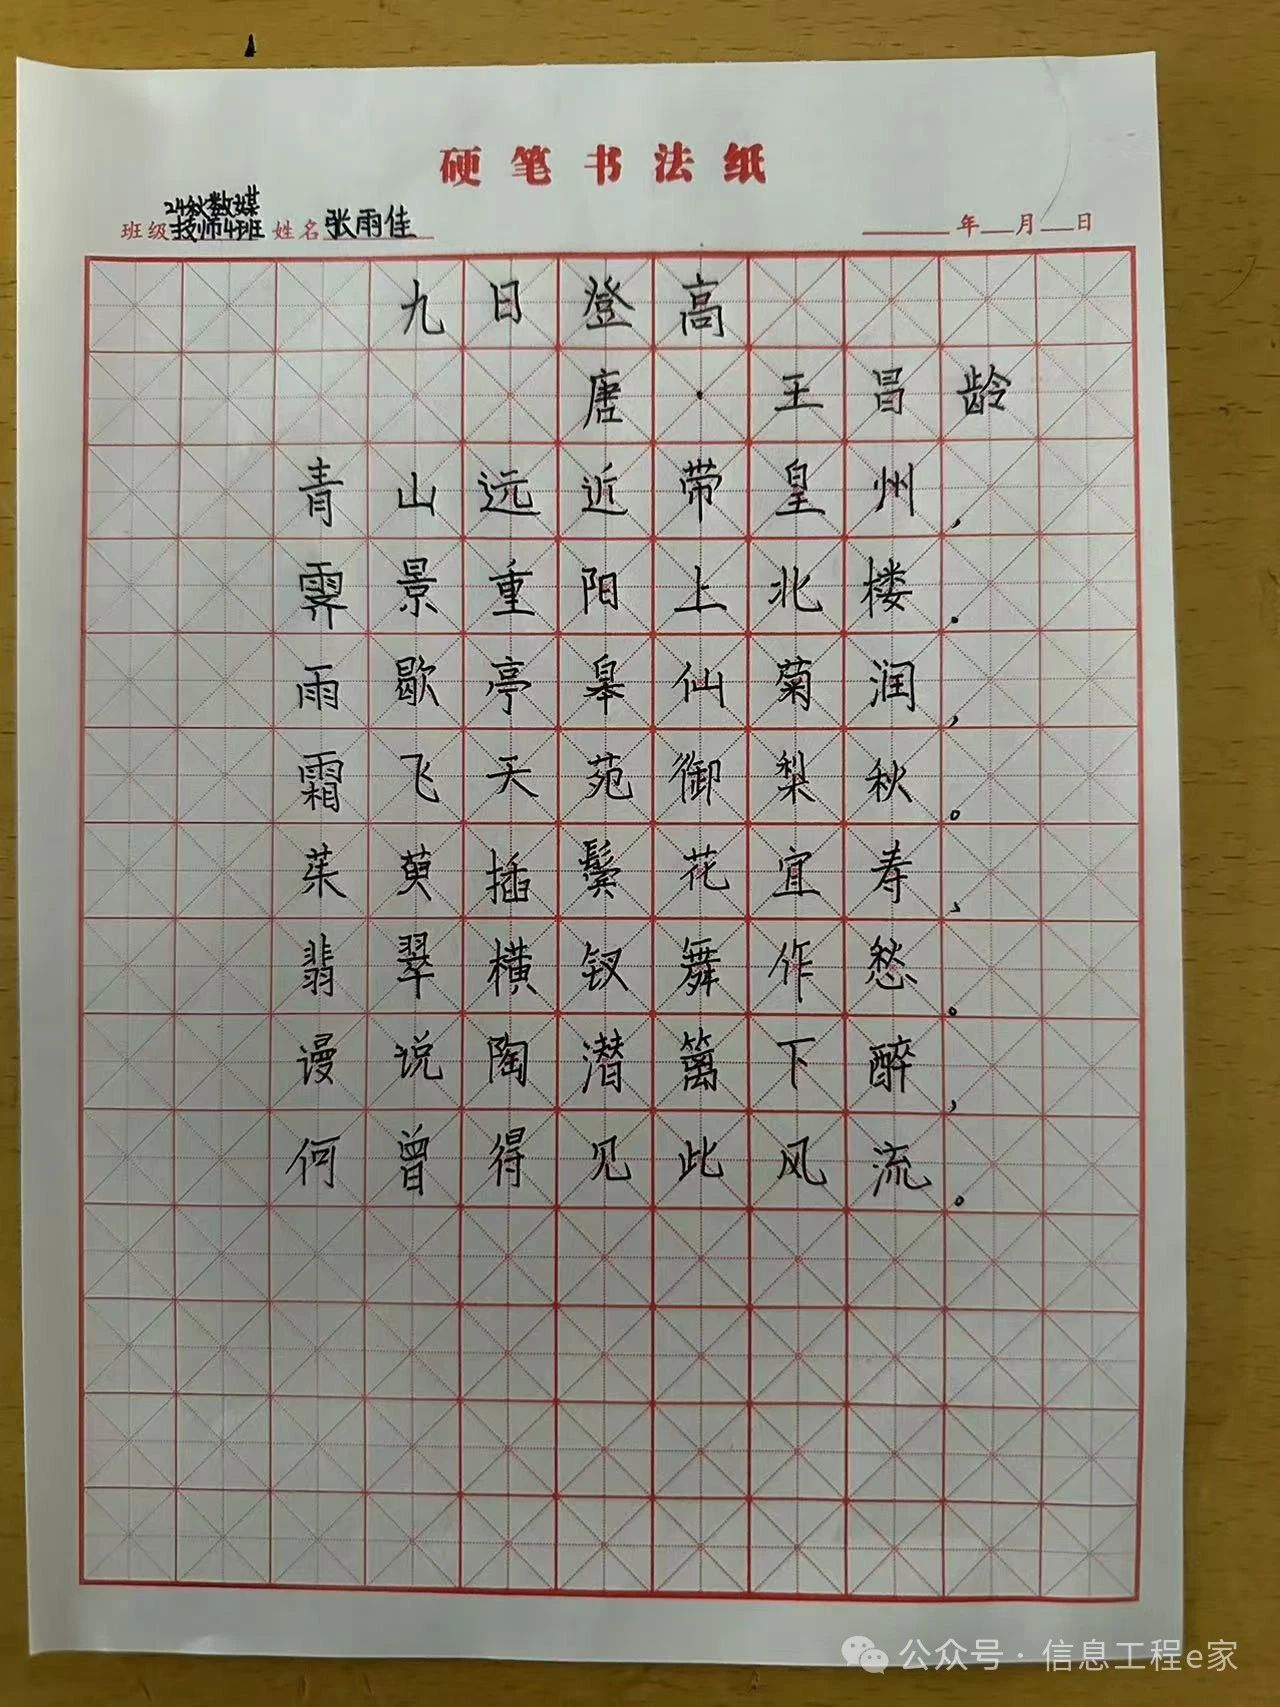 硬笔书法纸
24秋数媒
班级技师4班 姓名张雨佳 年月日
九日登高
唐·王昌龄
青山远近带皇州，
霁景重阳上北楼。
雨歇亭皋仙菊润，
霜飞天苑御梨秋。
茱萸插鬓花宜寿，
翡翠横钗舞作愁。
谩说陶潜篱下醉，
何曾得见此风流。
公众号·信息工程e家